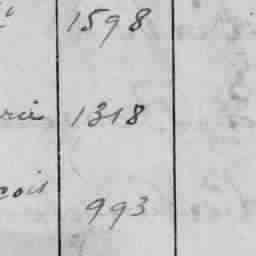 1598
rie 1318
çois 993